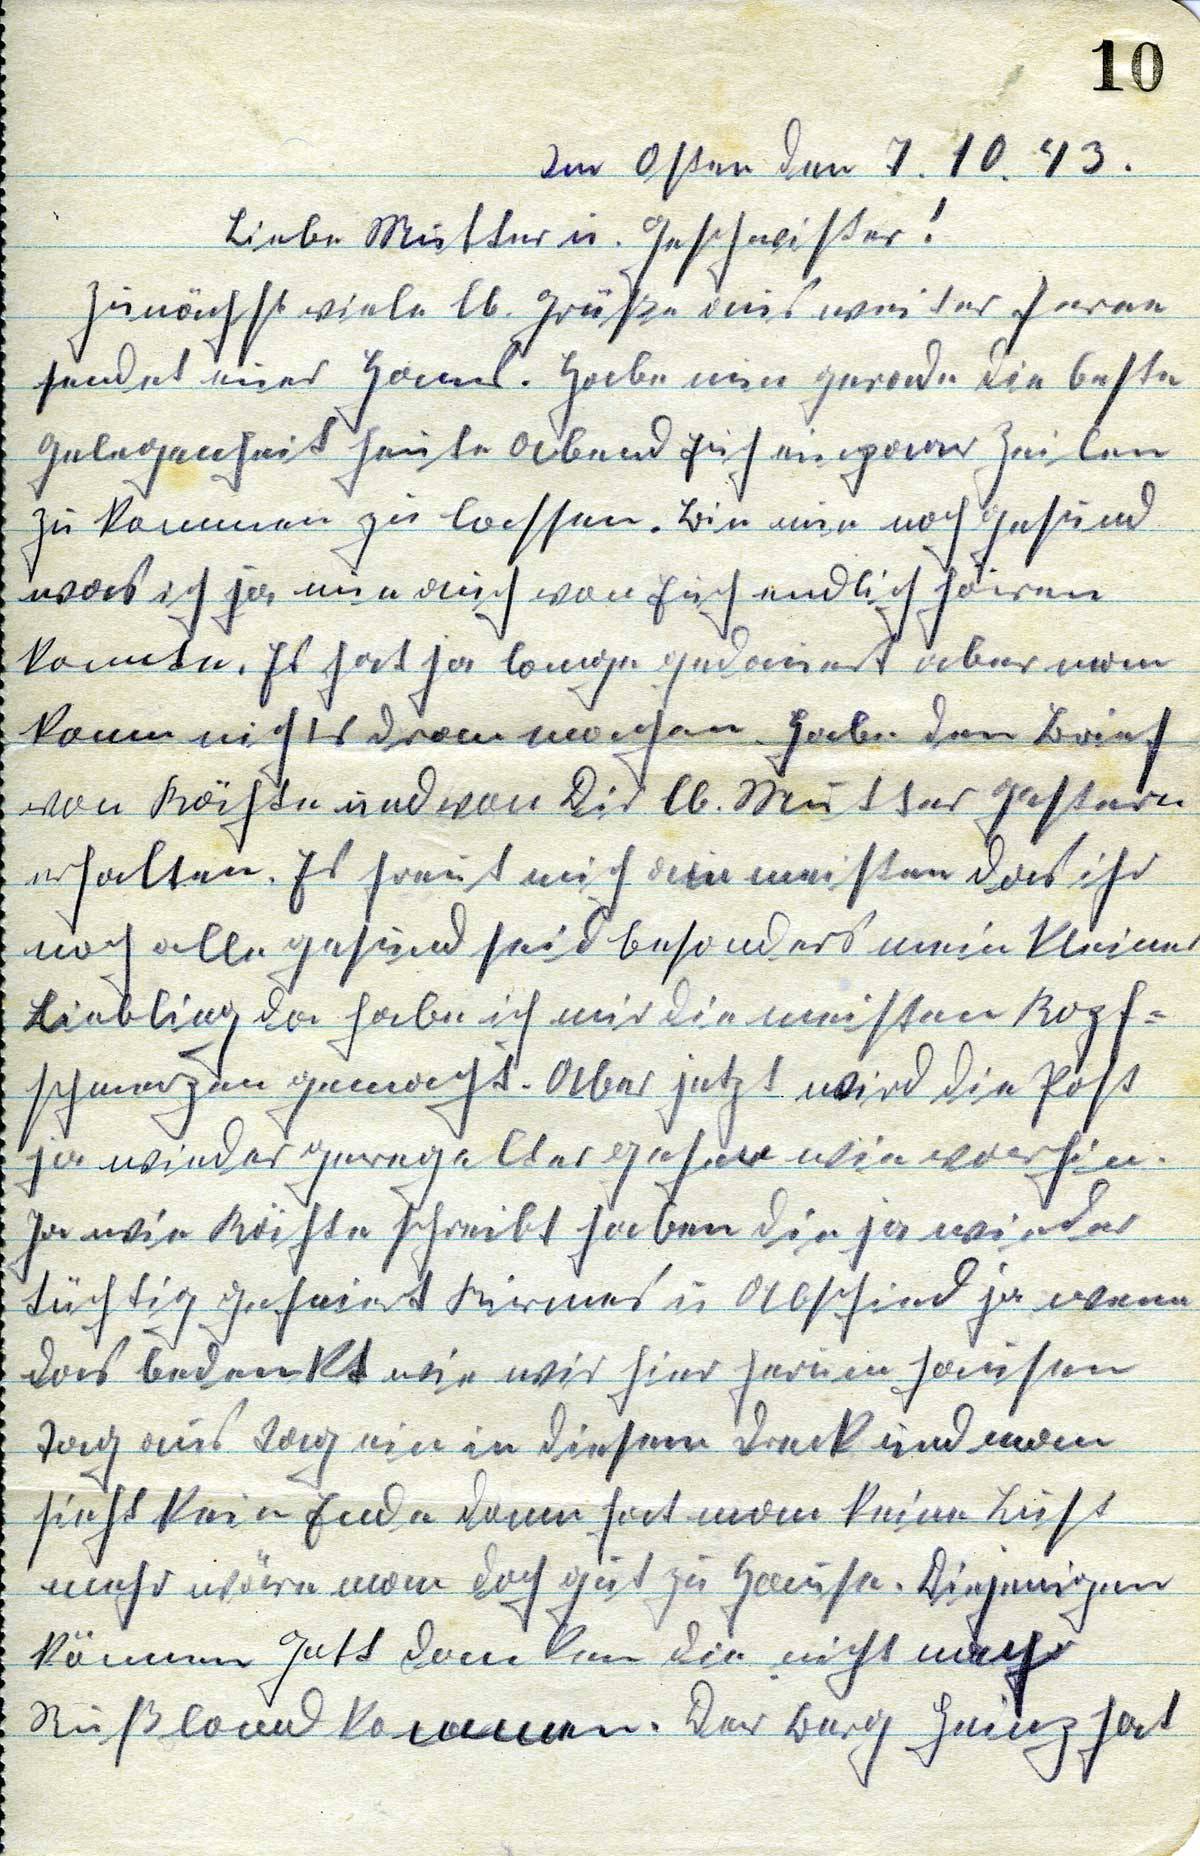 10
Im Osten den 7. 10. 43.
Liebe Mutter u. Geschwister!
Zunächst viele lb. Grüße aus weiter Ferne
sendet euer Hans. Habe nun gerade die beste
Gelegenheit heute Abend Euch ein paar Zeilen
zu kommen zu lassen. Bin nun noch gesund
was ich ja nun auch von Euch endlich hören
konnte. Es hat ja lange gedauert aber man
kann nichts dran machen. Habe den Brief
von Käthe und von Dir lb. Mutter gestern
erhalten. Es freut mich am meisten das ihr
noch alle gesund seid besonders mein kleiner
Liebling da habe ich mir die meisten Kopf=
schmerzen gemacht. Aber jetzt wird die Post
ja wieder geregelter gehen wie vorhin.
Ja wie Käthe schreibt haben die ja wieder
tüchtig gefeiert Kirmes u Abschied ja wenn
das bedenkt wie wir hier herum hausen
Tag aus Tag ein in diesem Dreck und man
sieht kein Ende dann hat man keine Lust
mehr wäre man doch gut zu Hause. Diejenigen
können Gott danken die nicht nach
Rußland kommen. Der Berg Heinz hat